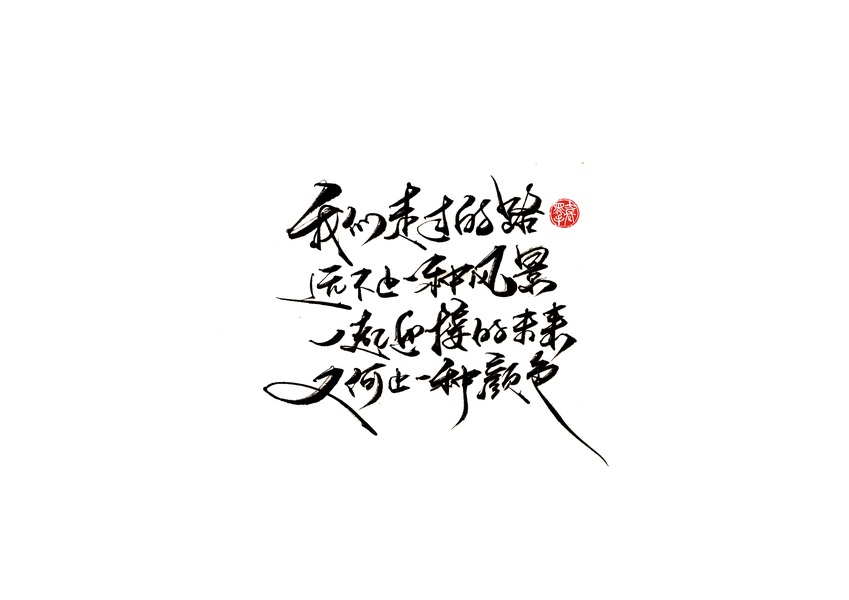 我们走过的路
远不止一种风景
一起迎接的未来
又何止一种颜色